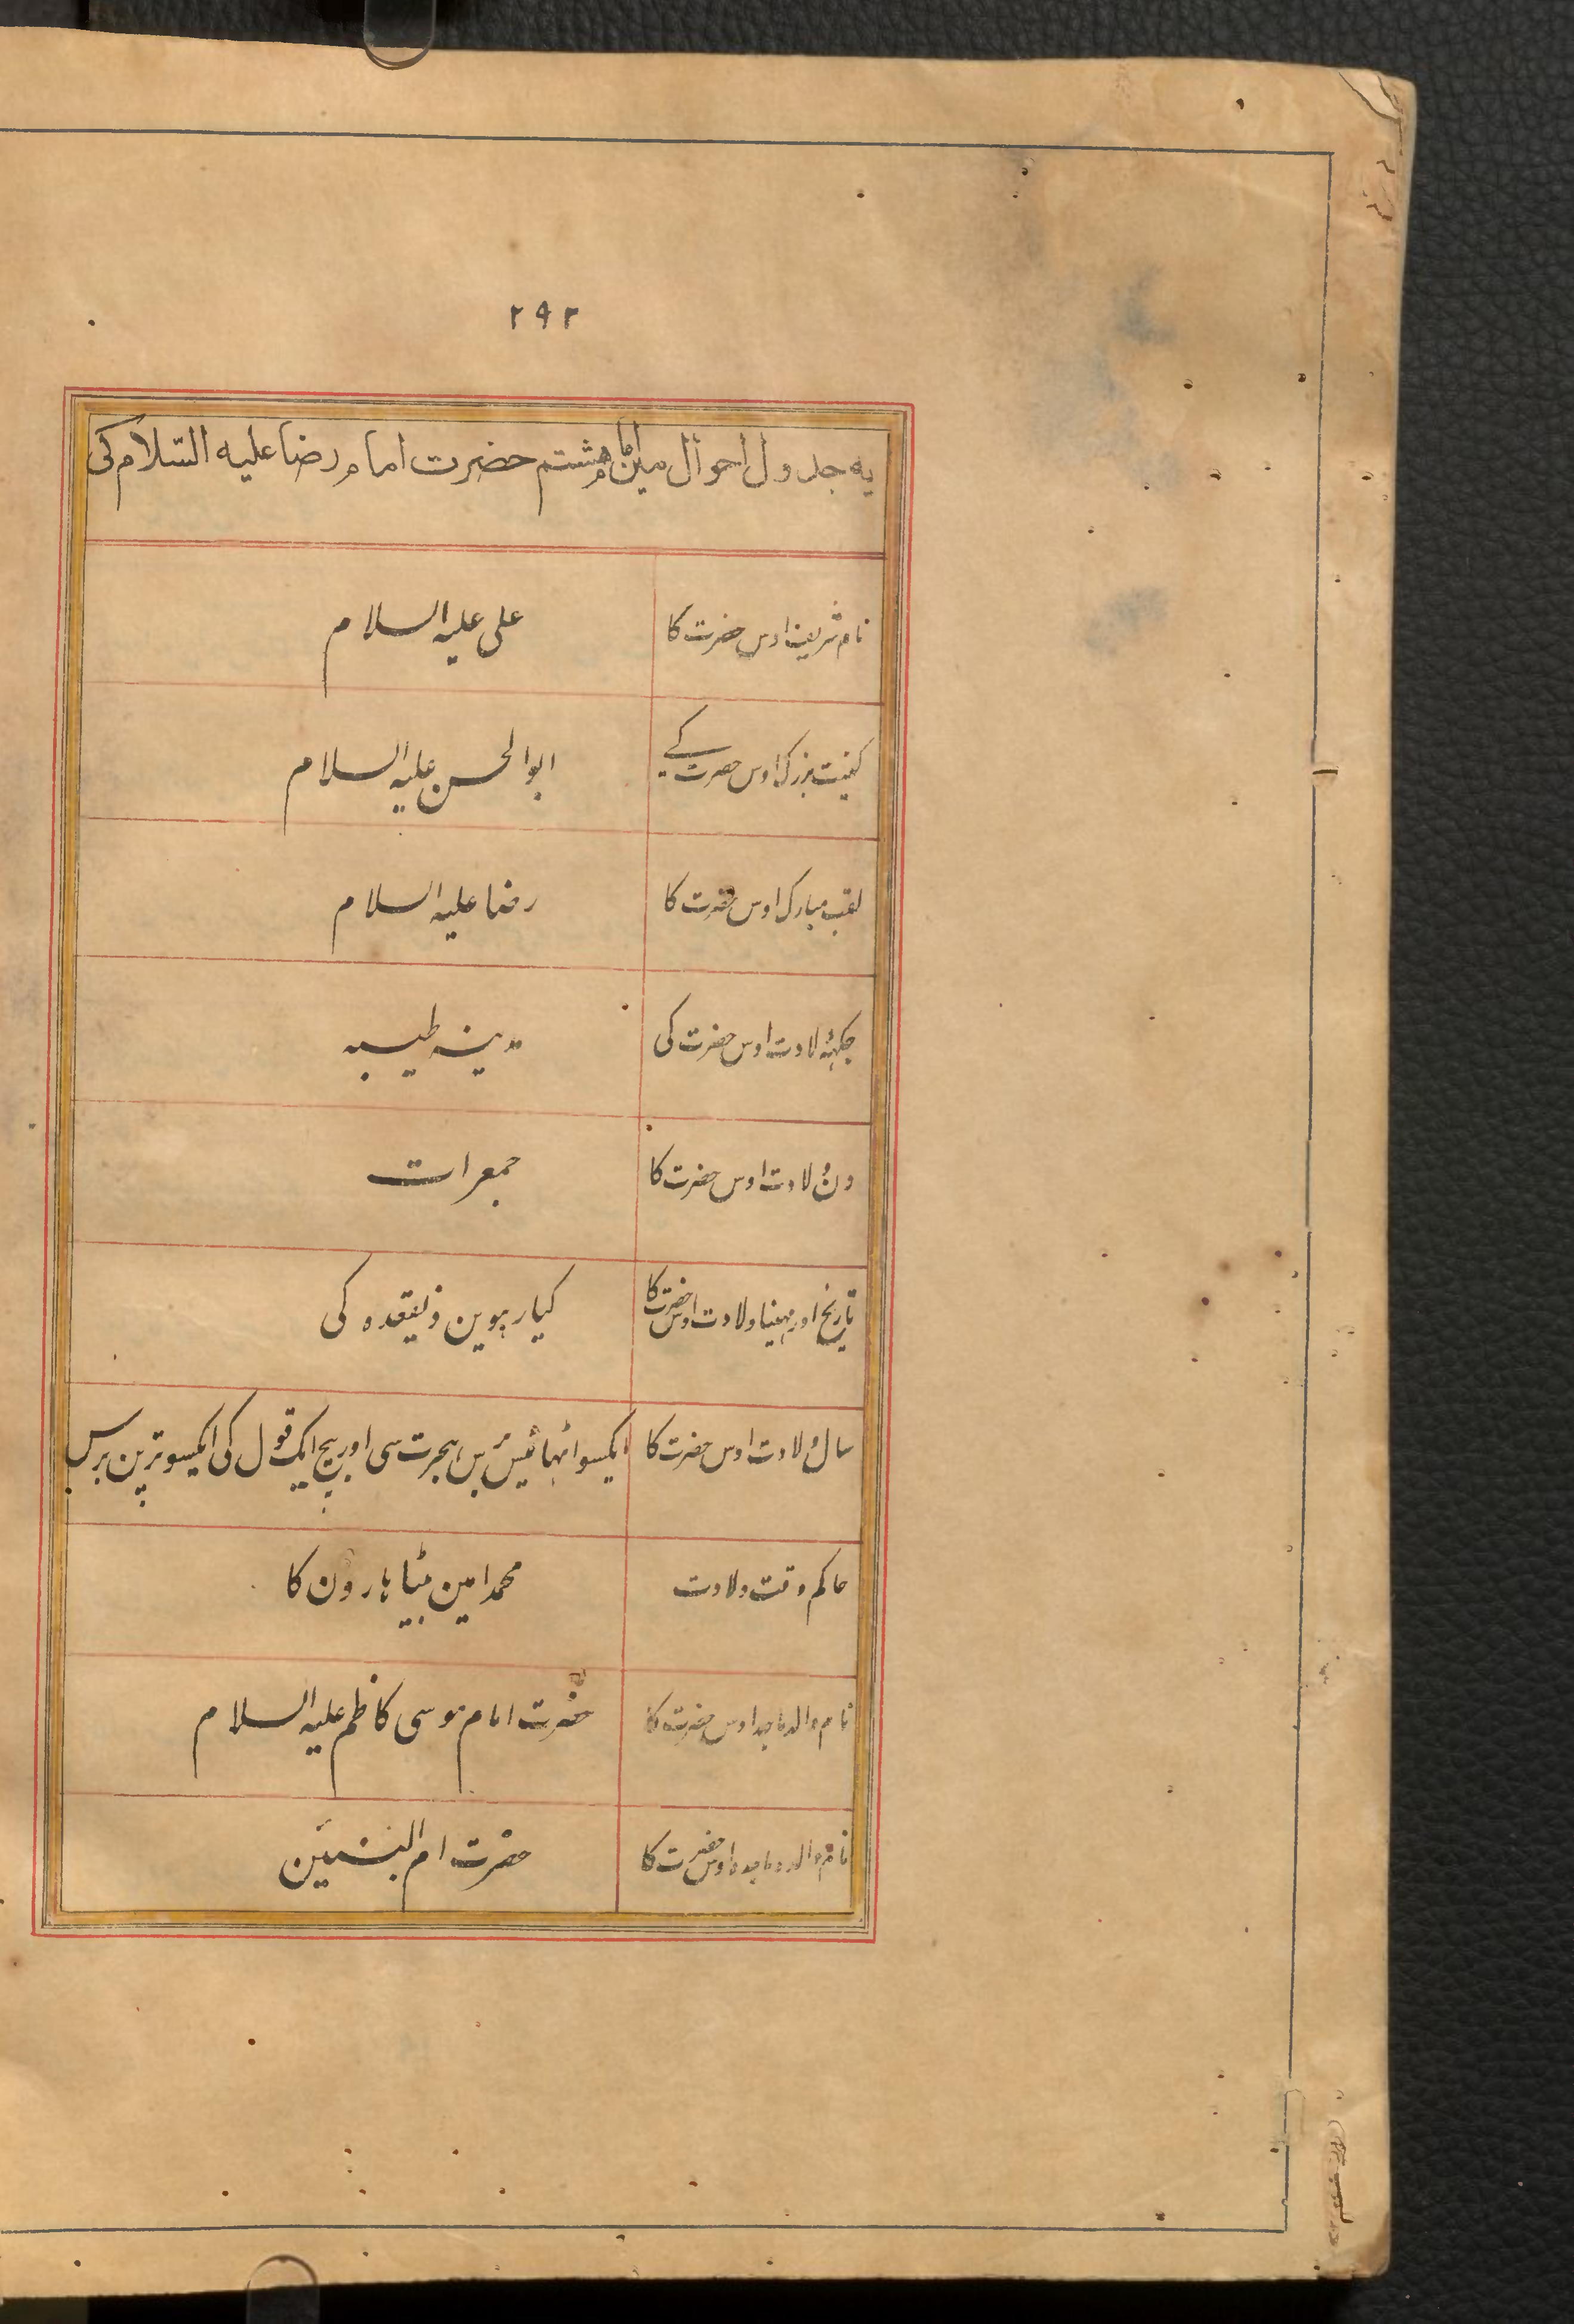 ۲۹۲
یه جدول احوال مین امام هشتم حضرت امام رضا علیه السّلام کی
نام شریف اوس حضرت کا علی علیه السلام
کنیت بزرک اوس حضرت کے ابوالحسن علیه السلام
لقب مبارک اوس حضرت کا رضا علیه السلام
جکہہ ولادت اوس حضرت کی مدینه طیبه
دن ولادت اوس حضرت کا جمعرات
تاریخ اور مہینا ولادت اوس حضرت کا کیارہوین ذیقعدہ کی
سال ولادت اوس حضرت کا ایکسو اٹہائیس برس ہجرت سی اور بیچ ایک قول کی ایکسو ترپن برس
حاکم وقت ولادت محمد امین بیٹا ہارون کا
نام والد ماجد اوس حضرت کا حضرت امام موسی کاظم علیه السلام
نام والدہ ماجدہ اوس حضرت کا حضرت ام البنین